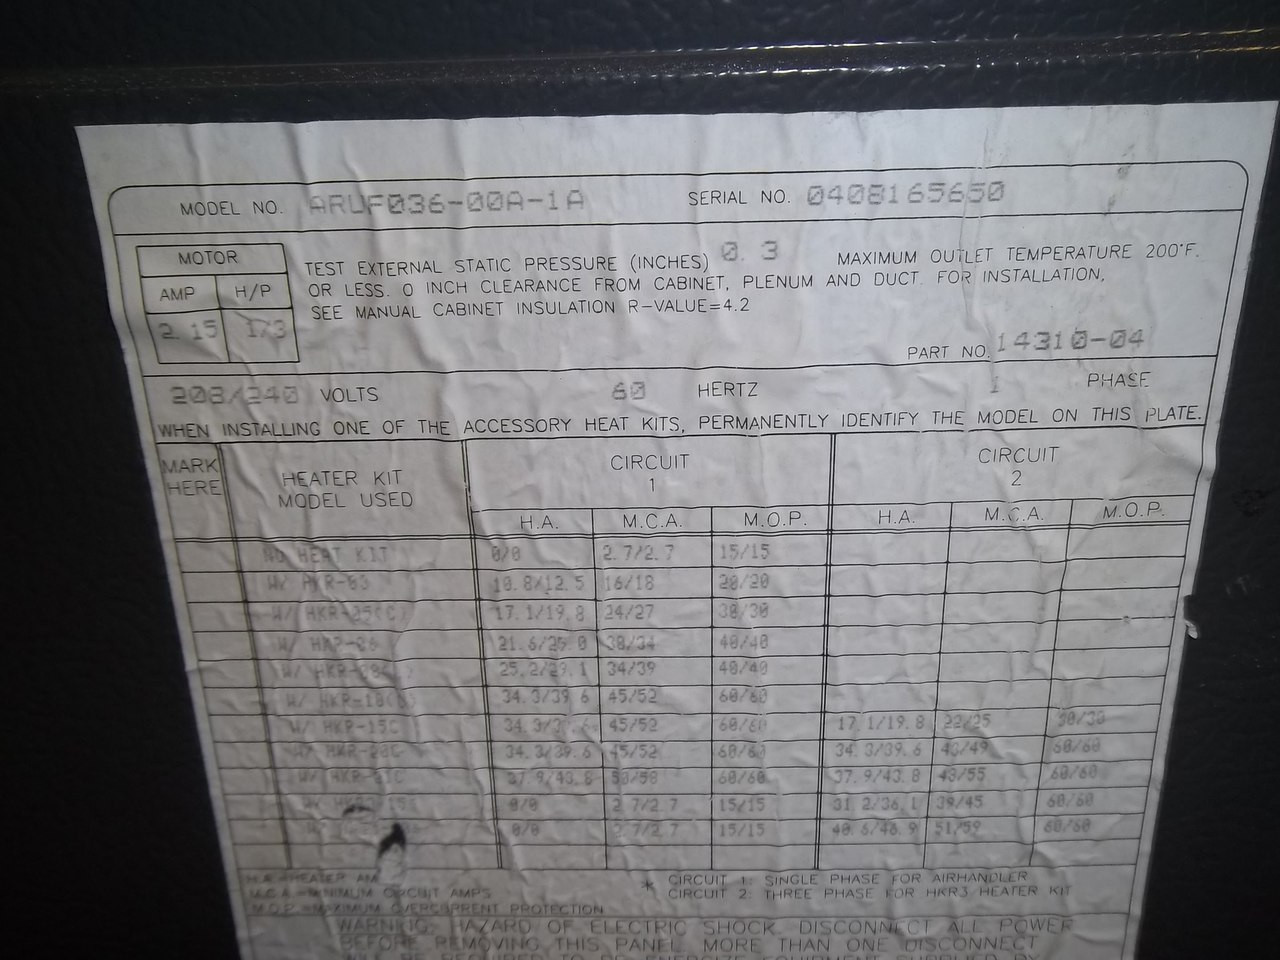 MODEL NO. ARUF036-00A-1A SERIAL NO. 0408165650
MOTOR
AMP H/P
2.15 1/3
TEST EXTERNAL STATIC PRESSURE (INCHES) 0.3 MAXIMUM OUTLET TEMPERATURE 200°F.
OR LESS. 0 INCH CLEARANCE FROM CABINET, PLENUM AND DUCT. FOR INSTALLATION,
SEE MANUAL CABINET INSULATION R-VALUE=4.2
PART NO. 14310-04
208/240 VOLTS 60 HERTZ 1 PHASE
WHEN INSTALLING ONE OF THE ACCESSORY HEAT KITS, PERMANENTLY IDENTIFY THE MODEL ON THIS PLATE.
MARK HERE HEATER KIT MODEL USED CIRCUIT 1 CIRCUIT 2
H.A. M.C.A. M.O.P. H.A. M.C.A. M.O.P.
NO HEAT KIT 0/0 2.7/2.7 15/15
W/ HKR-03 10.8/12.5 16/18 20/20
W/ HKR-05(C) 17.1/19.8 24/27 30/30
W/ HKR-06 21.6/25.0 30/34 40/40
W/ 25.2/29.1 34/39 40/40
W/ 34.3/39.6 45/52 60/60
W/ HKR-15C 34.3/39.6 45/52 60/60 17.1/19.8 22/25 30/30
W/ HKR-20C 34.3/39.6 45/52 60/60 34.3/39.6 43/49 60/60
W/ HKR-21C 37.9/43.8 50/58 60/60 37.9/43.8 48/55 60/60
0/0 2.7/2.7 15/15 31.2/36.1 39/45 60/60
0/0 2.7/2.7 15/15 40.6/46.9 51/59 60/60
H.A.=HEATER AM
M.C.A.=MINIMUM CIRCUIT AMPS
M.O.P.=MAXIMUM OVERCURRENT PROTECTION
* CIRCUIT 1: SINGLE PHASE FOR AIRHANDLER
CIRCUIT 2: THREE PHASE FOR HKR3 HEATER KIT
WARNING: HAZARD OF ELECTRIC SHOCK. DISCONNECT ALL POWER
BEFORE REMOVING THIS PANEL. MORE THAN ONE DISCONNECT